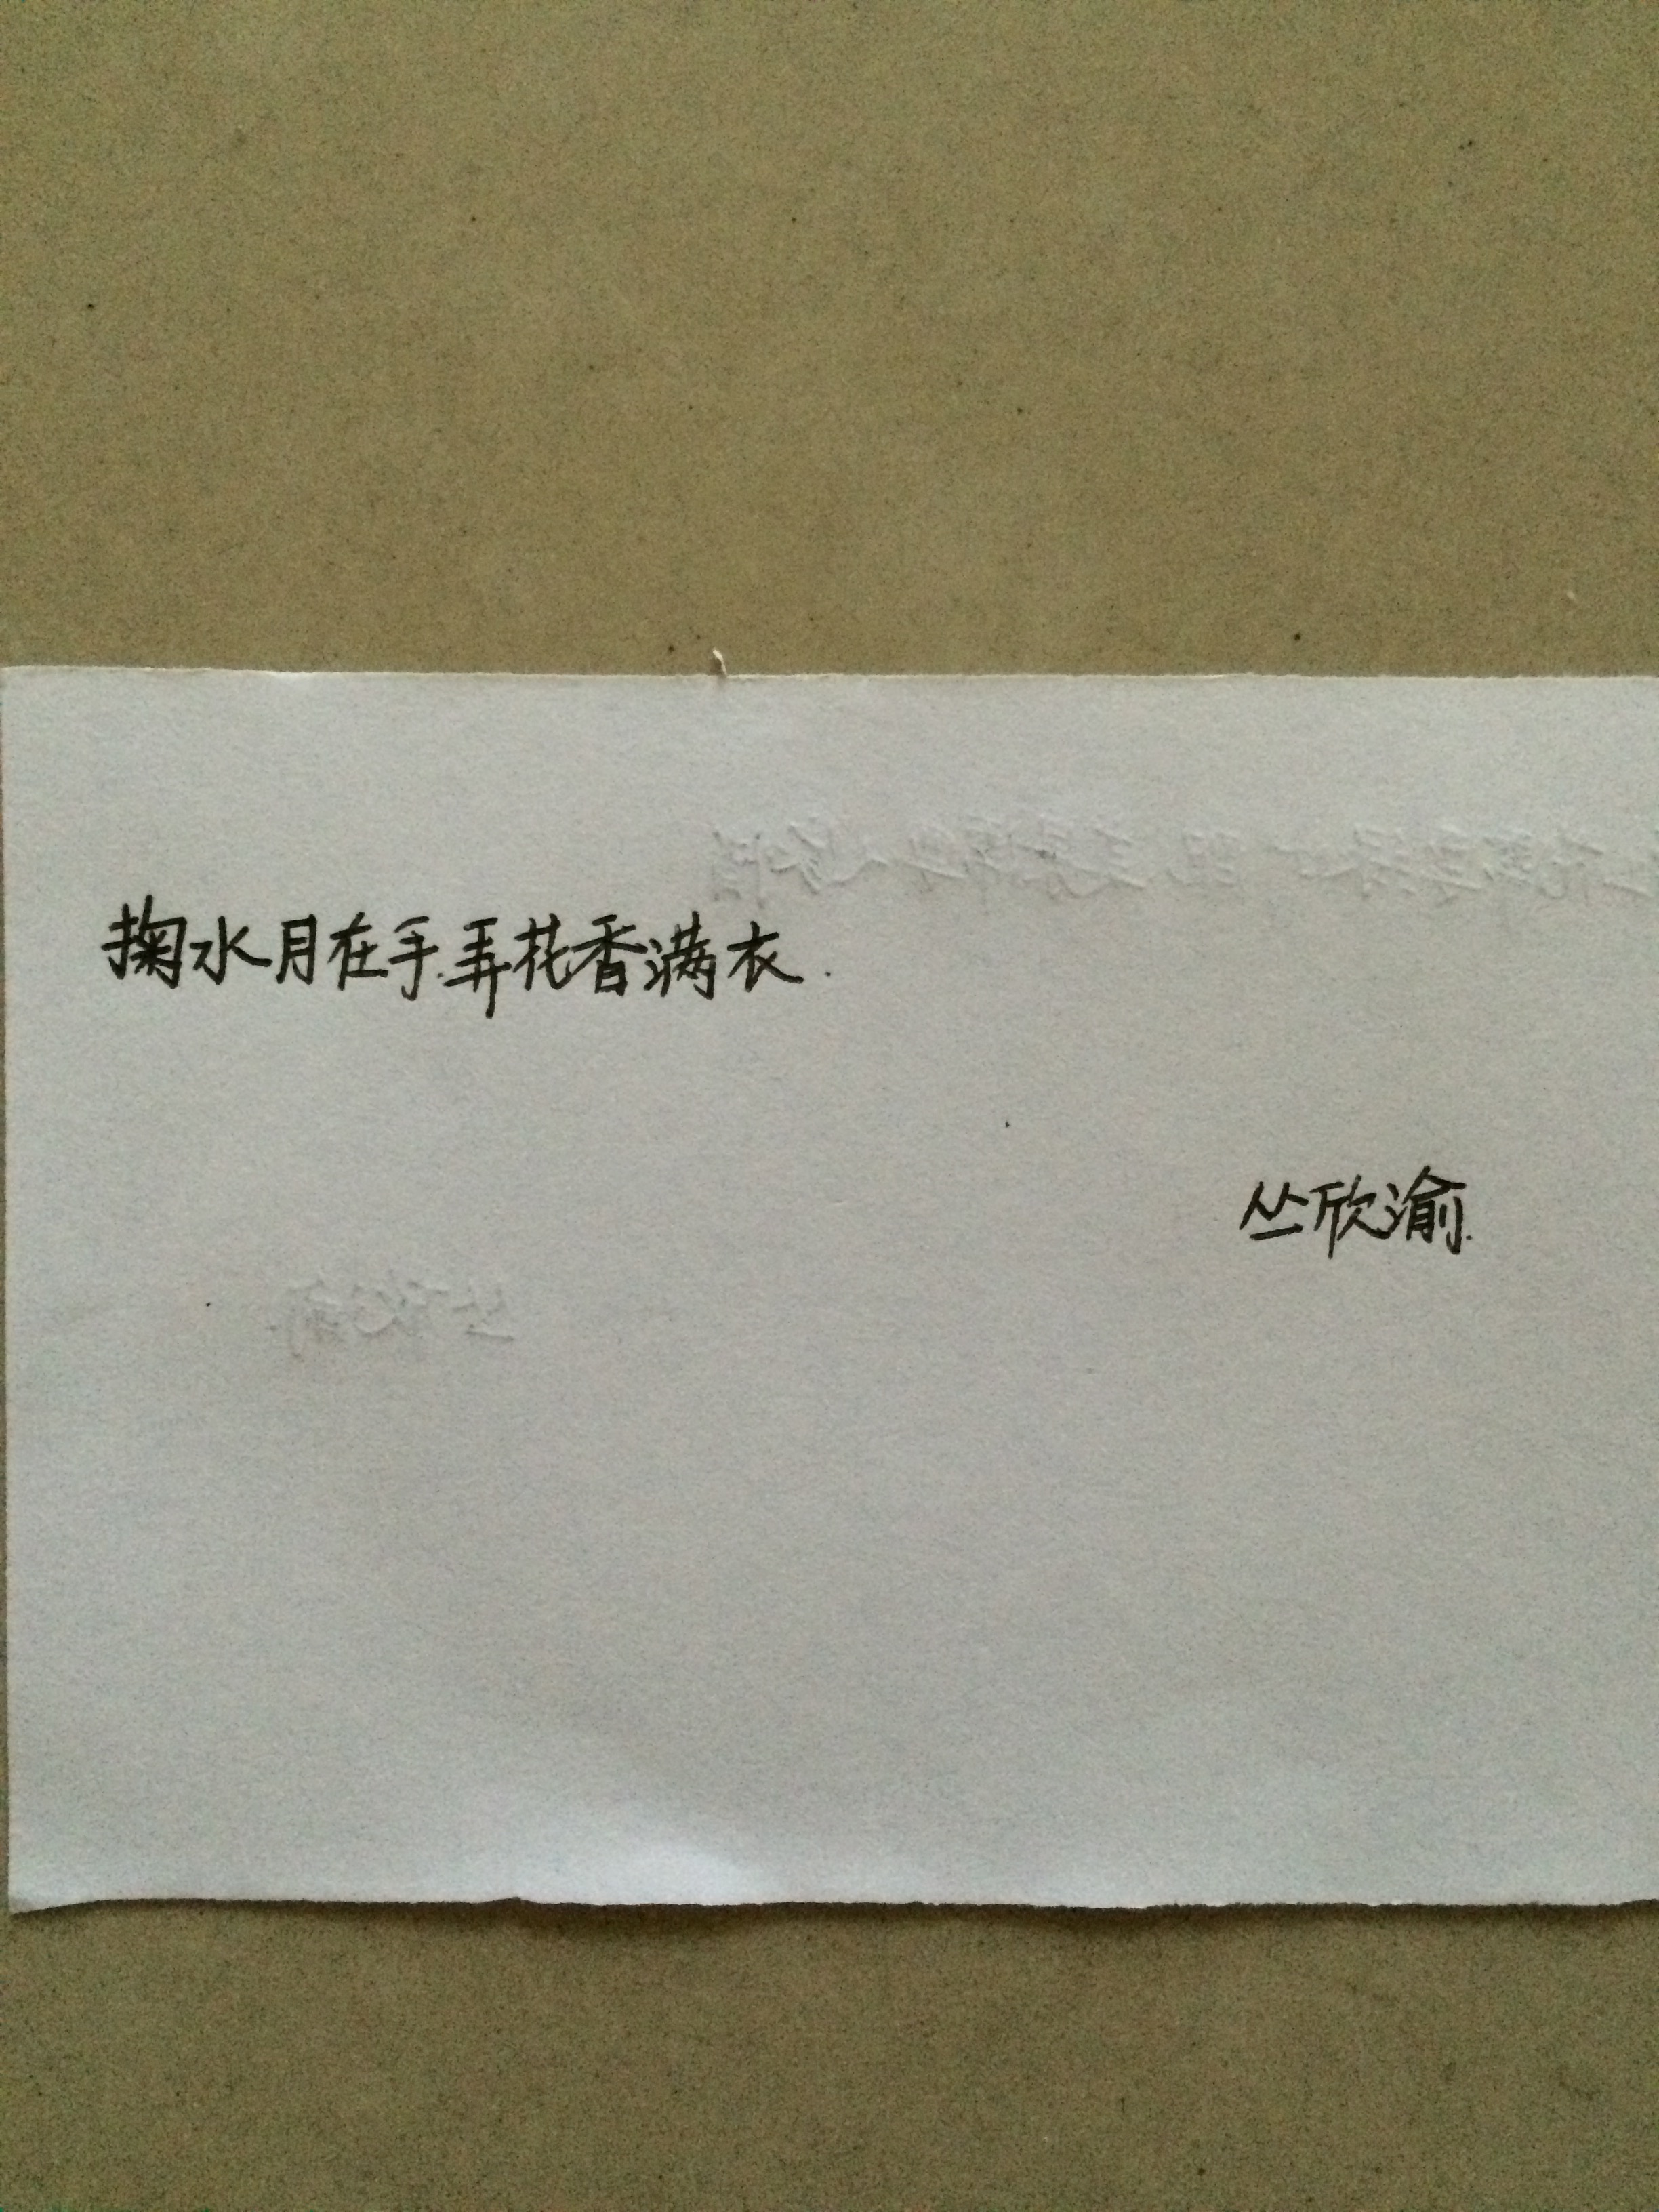 掬水月在手.弄花香满衣.
丛欣渝.